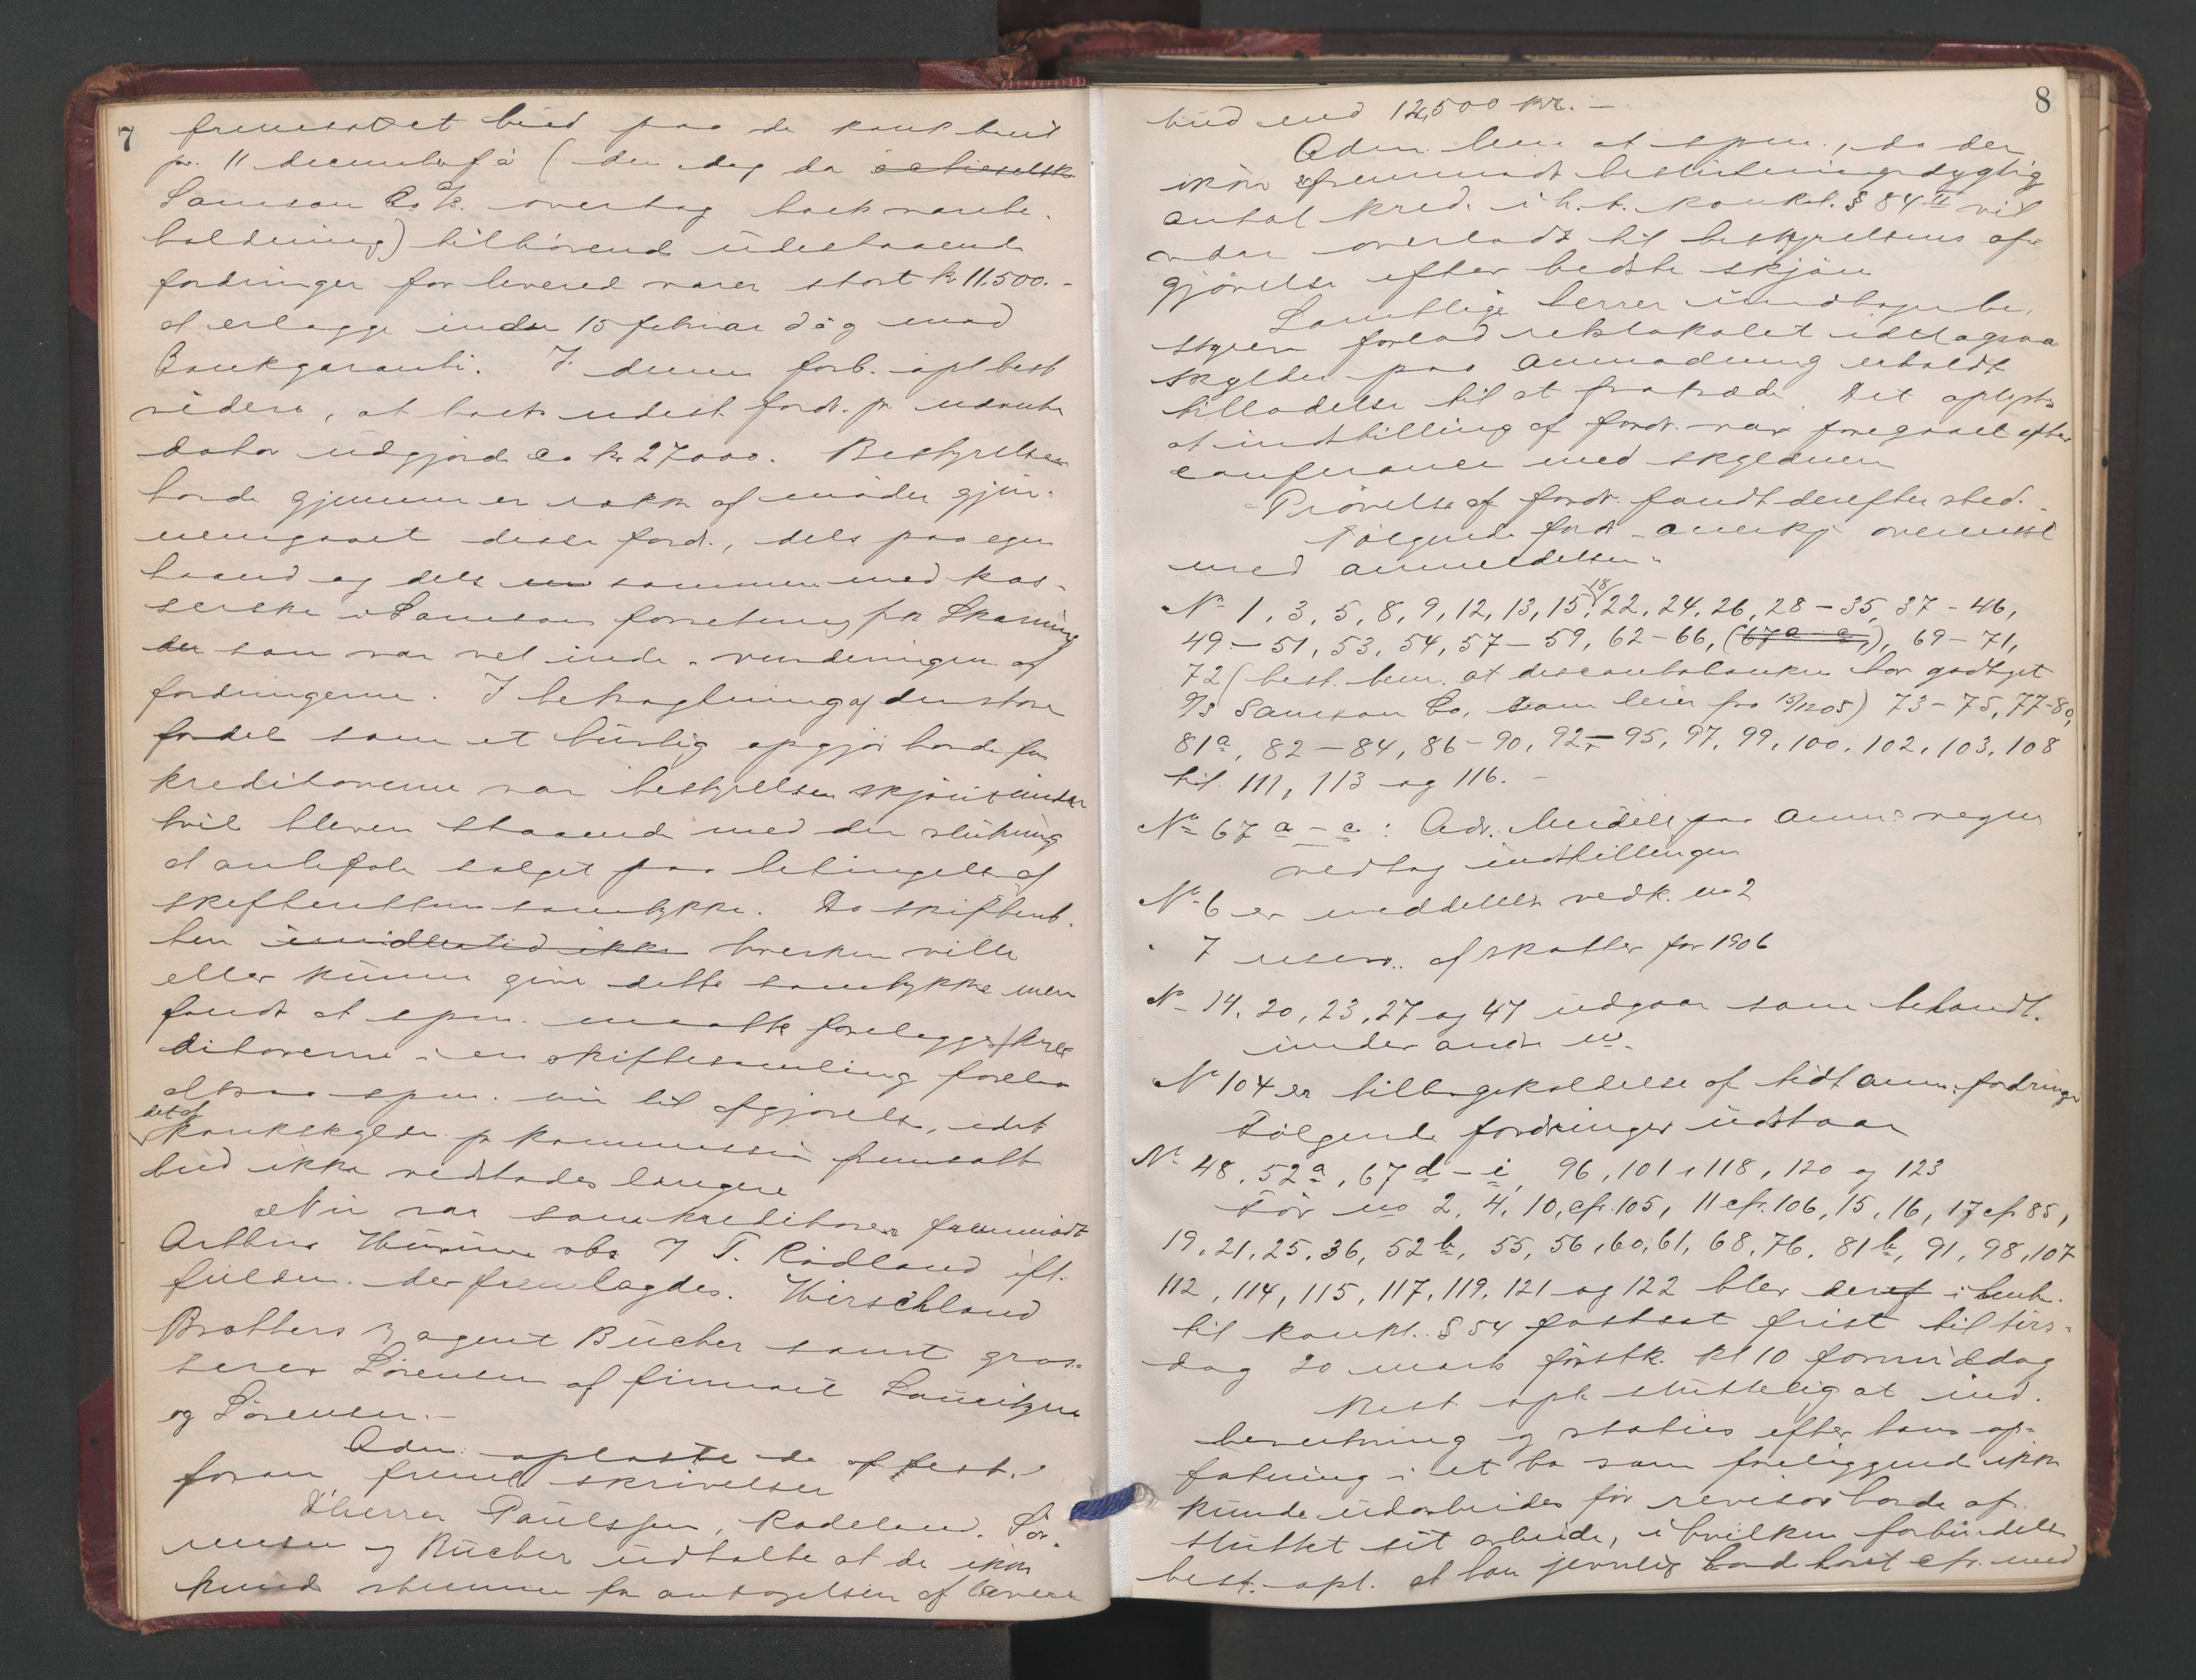 7
fremsat et bud paa de konk bent
pr. 11 december f å ( den dag da actieselsk
Samson Co A/S. overtog boets varebe-
holdning) tilhörende udestaaende
fordringer for leverede varer stort kr 11.500.-
at erlægge inden 15 februar d å g mod
Bankgaranti. I denne forb. opl best
videre, at boets udest fordr. pr nævnte
dato udgjorde ca kr 27000. Bestyrelsen
havde gjennem en rekke af möder gjen-
nemgaaet disse fordr., dels paa egen
haand og dels sammen med kas-
serske i Samsons forretning frk Skaning
der som var vel inde i vurderingen af
fordringerne. I betragtning af den store
fordel som et hurtig opgjör havde for
kreditorerne var bestyrelsen skjönt under
tvil bleven staaende med den slutning
at anbefale salget paa betingelse af
skifterettens samtykke. Da skifteret-
ten imidlertid ikke hverken vilde
eller kunne give dette samtykke men
fandt at spm. maatte forelægges kre-
ditorerne i en skiftesamling forelaa
altsaa spm. nu til afgjörelse, idet
det af
konkskyldn. pr kommission fremsatte
bud ikke vedstodes længere
Nu var som kreditorer fremmödt
Arthur vbs J T. Rödland ifl.
fuldm. der fremlagdes. Hirschland
Brothers v agent Bücher samt gros-
serer Sörensen af firmaet Lauritzen
og Sörensen.-
Adm: oplæste de af best.
foran freml skrivelser
D'herrer Paulssen, Rödland, Sö-
rensen og Bücher udtalte at de ikke
kunde stemme for antagelsen af
8
bud med 12,500 kr. -
Adm. bem at spm., da der
ikke er fremmödt beslutningsdygtig
antal kred. i h. t. konkl. § 84 II vil
være overladt til bestyrelsens af-
gjörelse efter bedste skjön
Samtlige herrer undtagen be-
styren forlod retslokalet idet ogsaa
skyldn paa anmodning erholdt
tilladelse til at fratræde. Det oplystes
at indstilling af fordr. var foregaaet efter
conferance med skyldneren
Prövelse af fordr. fandt derefter sted.
Fölgende fordr anerkj overensst
med anmeldelsen.
No 1, 3, 5, 8, 9, 12, 13, 15, 18, 22, 24, 26, 28 – 35, 37 – 46,
49 – 51, 53, 54, 57 – 59, 62 – 66, (67 a – c), 69 – 71,
72 ( best. bem. at discontobanken har godtgjt
A/S Samson Co. som leier fra 13/12 05) 73 – 75, 77-80,
81a, 82 – 84, 86 – 90, 92 – 95, 97, 99, 100, 102, 103, 108
til 111, 113 og 116. -
No 67 a – c : Adv. Meidell paa anm: vegne
vedtog indstillingen
No 6 er meddelelse vedk. no 2
" 7 reserv. af skatter for 1906
No 14, 20, 23, 27 og 47 udgaar som behandt.
under andre no.
No 104 er tilbagekaldelse af tidl anm: fordringer
Fölgende fordringer udstaar
No 48, 52a, 67 d – i, 96, 101, 118, 120 og 123
För no 2, 4, 10, cfr. 105, 11 cfr. 106, 15, 16, 17 cfr 85,
19, 21, 25, 36, 52 b, 55, 56, 60, 61, 68, 76, 81 b, 91, 98, 107
112, 114, 115, 117, 119, 121 og 122 blev deref i henh.
til konkl. § 54 fastsat frist til tirs-
dag 20 marts förstk. kl 10 formiddag
Best. opl. sluttelig at ind-
beretning og status efter hans op-
fatning i et bo som foreliggende ikke
kunde udarbeides för revisor havde af-
sluttet sit arbeide, i hvilken forbindelse
best. opl. at han jevnlig havde havt cfr. med